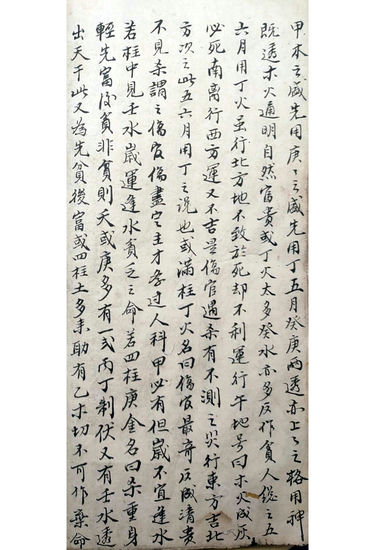 甲木之盛先用庚〻之盛先用丁五月癸庚兩透亦上〻之格用神
既透木火通明自然富貴或丁火太多癸水亦多反作貧人縂之五
六月用丁火虽行北方地不致於死却不利運行午地号曰木火成灰
必死南离行西方運又不吉是傷官遇杀有不測之災行東方吉北
方次之此五六月用丁之說也或滿柱丁火名曰傷官最奇反成清貴
不見杀謂之傷官傷盡定主才孝过人科甲必有但嵗不宜逢水
若柱中見壬水嵗運逢水貧乏之命若四柱庚金名曰杀重身
輕先富後貧非貧則夭或庚多有一弍丙丁制伏又有壬水透
出天干此又為先貧後富或四柱土多来助有乙木切不可作棄命